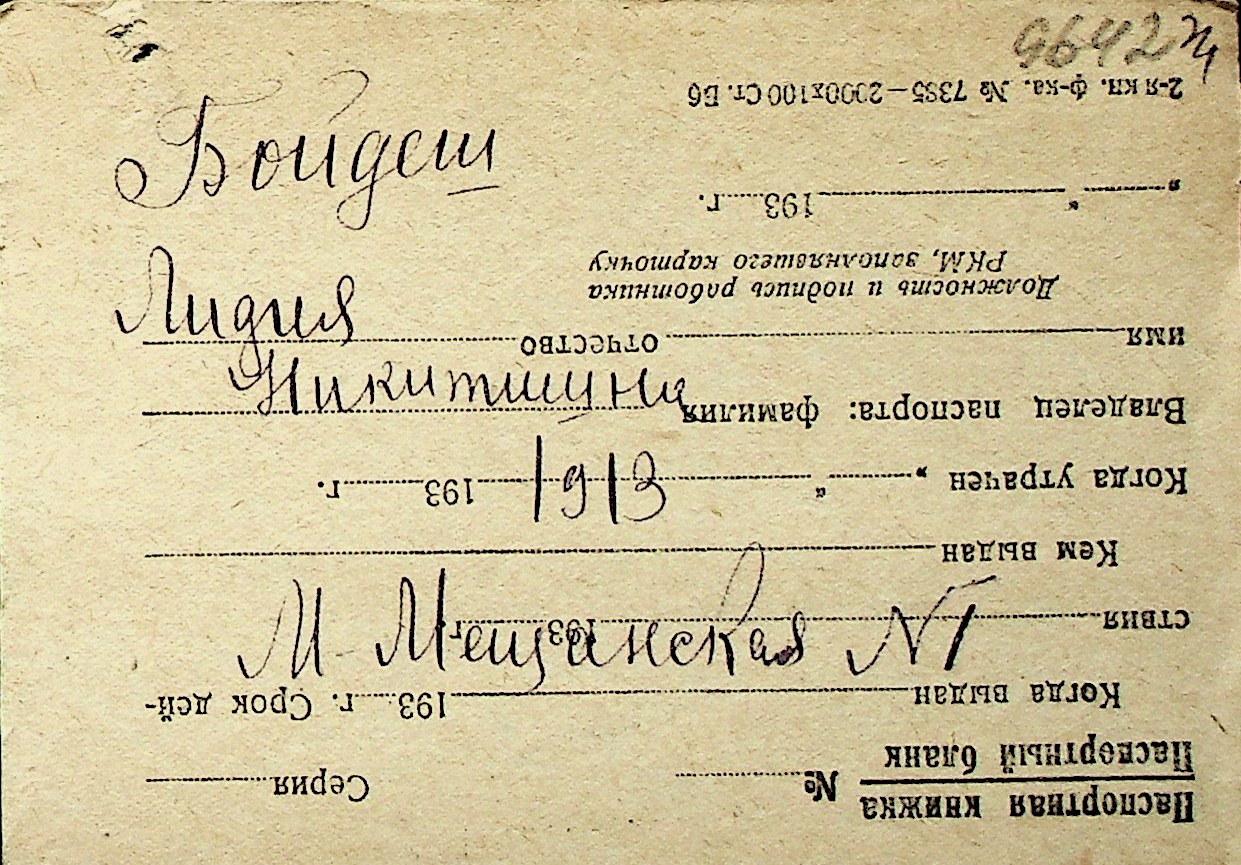 9642
Бойдеш
Лидия
Никитишна
1913
М-Мещанская N1
Паспортная книжка
Паспортный бланк
№ Серия
Когда выдан 193 г. Срок дей-
ствия 193 г.
Кем выдан
Когда утрачен „ “ 193 г.
Владелец паспорта: фамилия
имя отчество
Должность и подпись работника
РКМ, заполнявшего карточку
„ “ 193 г.
2-я кн. ф-ка. № 7385—2000х100 Ст. Б6